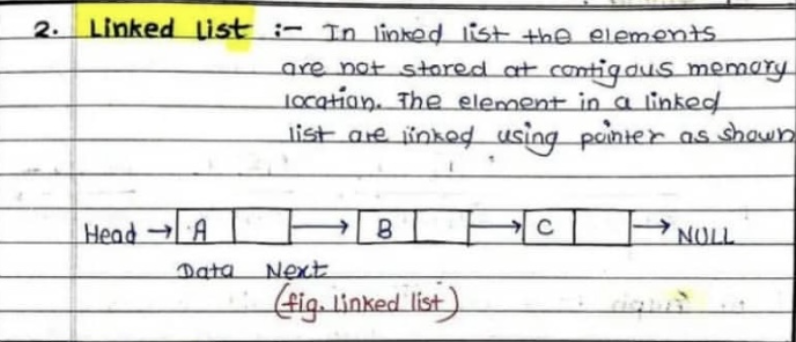 2. Linked List :- In linked list the elements
are not stored at contigous memory
location. The element in a linked
list are linked using pointer as shown
Head → A → B → C → NULL
Data Next
(fig. linked list)